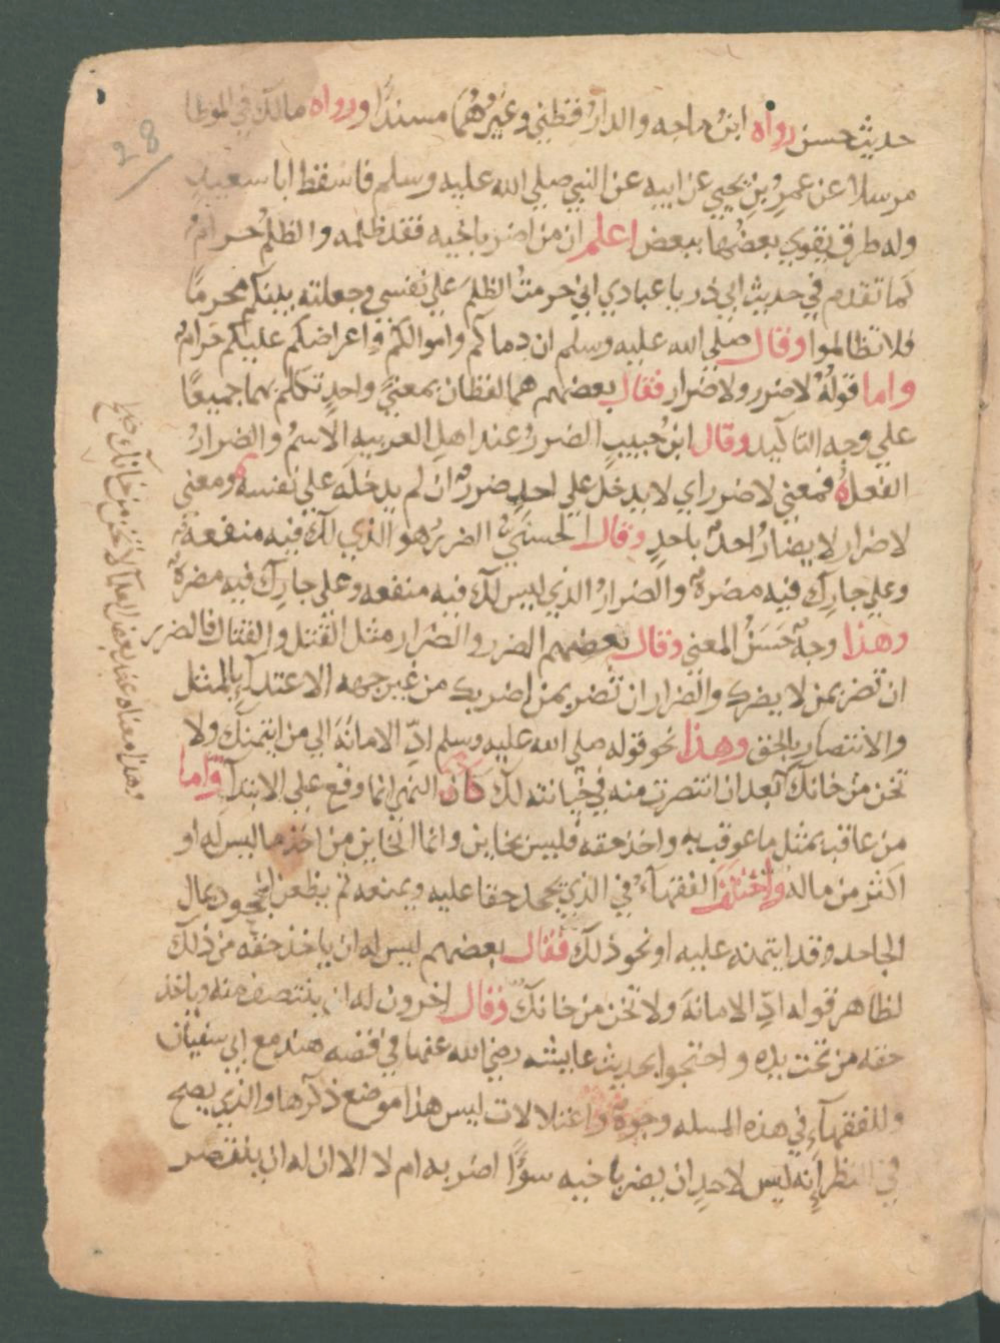 حديث حسن رواه ابن ماجه والدارقطني وغيرهما مسندا ورواه مالك في الموطا
مرسلا عن عمرو بن يحيي عن ابيه عن النبي صلى الله عليه وسلم فاسقط ابا سعيد
وله طرق يقوي بعضها ببعض اعلم ان من اضر باخيه فقد ظلمه والظلم حرام
كما تقدم في حديث ابي ذر يا عبادي اني حرمت الظلم علي نفسي وجعلته بينكم محرما
فلا تظالموا وقال صلي الله عليه وسلم ان دماكم واموالكم واعراضكم عليكم حرام
واما قوله لا ضرر ولا ضرار فقال بعضهم هما لفظان بمعني واحد تكلم بهما جميعا
علي وجه التاكيد وقال ابن حبيب الضرر عند اهل العربيه الاسم والضرار
الفعل فمعني لا ضرر اي لا يدخل علي احد ضررا ان لم يدخله علي نفسه ومعني
لا ضرار لا يضار احد باحد وقال الحسني الضرر هو الذي لك فيه منفعة
وعلي جارك فيه مضرة والضرار الذي ليس لك فيه منفعه وعلي جارك فيه مضرة
وهذا وجه حسن المعني وقال بعضهم الضرر والضرار مثل القتل والقتال فالضرر
ان تضر بمن لا يضرك والضرار ان تضر بمن اضر بك من غير جهه الاعتدآ بالمثل
والانتصار بالحق وهذا نحو قوله صلي الله عليه وسلم ادّ الامانة الي من ايتمنك ولا
تخن من خانك بعد ان انتصرت منه في خيانته لك كان النهي انما وقع علي الابتدآ واما
من عاقب بمثل ما عوقب به واخذ حقه فليس بخاين وانما الخاين من اخذ ما ليس له او
اكثر من ماله واختلف الفقهآء في الذي يجحد حقا عليه ويمنعه ثم يظفر المجحود بمال
الجاحد وقد ايتمنه عليه او نحو ذلك فقال بعضهم ليس له ان ياخذ حقه من ذلك
لظاهر قوله ادّ الامانة ولا تخن من خانك وقال اخرون له ان ينتصف منه وياخذ
حقه من تحت يده واحتجوا بحديث عايشه رضي الله عنها في قصه هند مع ابي سفيان
وللفقهآء في هذه المسله وجوه واعتلالات ليس هذا موضع ذكرها والذي يصح
في النظر انه ليس لاحد ان يضر باخيه سوآء اضر به ام لا الا ان له ان ينتصر
وهذا معناه عند بعض العلمآ لا تخن من خانك
28